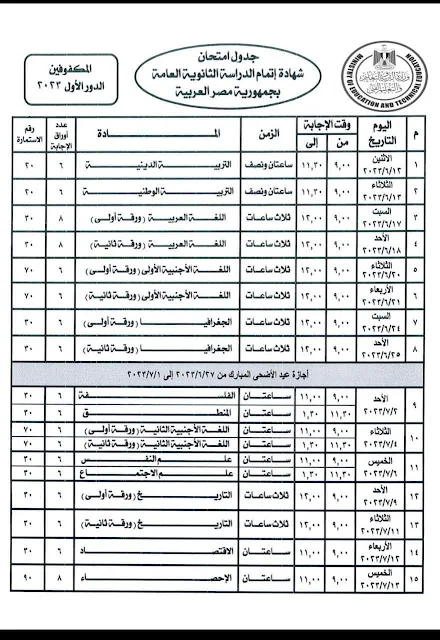 جدول امتحان
شهادة إتمام الدراسة الثانوية العامة
بجمهورية مصر العربية
المكفوفين
الدور الأول ٢٠٢٣
MINISTRY OF EDUCATION AND TECHNICAL EDUCATION
م اليوم التاريخ وقت الإجابة من إلى الزمن المــــادة عدد أوراق الإجابة رقم الاستمارة
١ الاثنين ٢٠٢٣/٦/١٢ ٩,٠٠ ١١,٣٠ ساعتان ونصف التربية الدينية ٦ ٢٠
٢ الثلاثاء ٢٠٢٣/٦/١٣ ٩,٠٠ ١١,٣٠ ساعتان ونصف التربية الوطنية ٦ ٢٠
٣ السبت ٢٠٢٣/٦/١٧ ٩,٠٠ ١٢,٠٠ ثلاث ساعات اللغة العربية (ورقة أولى) ٨ ٣٠
٤ الأحد ٢٠٢٣/٦/١٨ ٩,٠٠ ١٢,٠٠ ثلاث ساعات اللغة العربية (ورقة ثانية) ٨ ٣٠
٥ الثلاثاء ٢٠٢٣/٦/٢٠ ٩,٠٠ ١٢,٠٠ ثلاث ساعات اللغة الأجنبية الأولى (ورقة أولى) ٦ ٧٠
٦ الأربعاء ٢٠٢٣/٦/٢١ ٩,٠٠ ١٢,٠٠ ثلاث ساعات اللغة الأجنبية الأولى (ورقة ثانية) ٦ ٧٠
٧ السبت ٢٠٢٣/٦/٢٤ ٩,٠٠ ١٢,٠٠ ثلاث ساعات الجغرافيا (ورقة أولى) ٦ ٣٠
٨ الأحد ٢٠٢٣/٦/٢٥ ٩,٠٠ ١٢,٠٠ ثلاث ساعات الجغرافيا (ورقة ثانية) ٦ ٣٠
أجازة عيد الأضحى المبارك من ٢٠٢٣/٦/٢٧ إلى ٢٠٢٣/٧/١
٩ الأحد ٢٠٢٣/٧/٢ ٩,٠٠ ١١,٠٠ ساعتان الفلسفة ٦ ٣٠
١١,٣٠ ١,٣٠ ساعتان المنطق ٦ ٣٠
١٠ الثلاثاء ٢٠٢٣/٧/٤ ٩,٠٠ ١١,٠٠ ساعتان اللغة الأجنبية الثانية (ورقة أولى) ٦ ٧٠
١١,٣٠ ١,٣٠ ساعتان اللغة الأجنبية الثانية (ورقة ثانية) ٦ ٧٠
١١ الخميس ٢٠٢٣/٧/٦ ٩,٠٠ ١١,٠٠ ساعتان علم النفس ٦ ٣٠
١١,٣٠ ١,٣٠ ساعتان علم الاجتماع ٦ ٣٠
١٢ الأحد ٢٠٢٣/٧/٩ ٩,٠٠ ١٢,٠٠ ثلاث ساعات التاريخ (ورقة أولى) ٦ ٣٠
١٣ الثلاثاء ٢٠٢٣/٧/١١ ٩,٠٠ ١٢,٠٠ ثلاث ساعات التاريخ (ورقة ثانية) ٦ ٣٠
١٤ الأربعاء ٢٠٢٣/٧/١٢ ٩,٠٠ ١١,٠٠ ساعتان الاقتصاد ٦ ٣٠
١٥ الخميس ٢٠٢٣/٧/١٣ ٩,٠٠ ١١,٠٠ ساعتان الإحصاء ٨ ٩٠